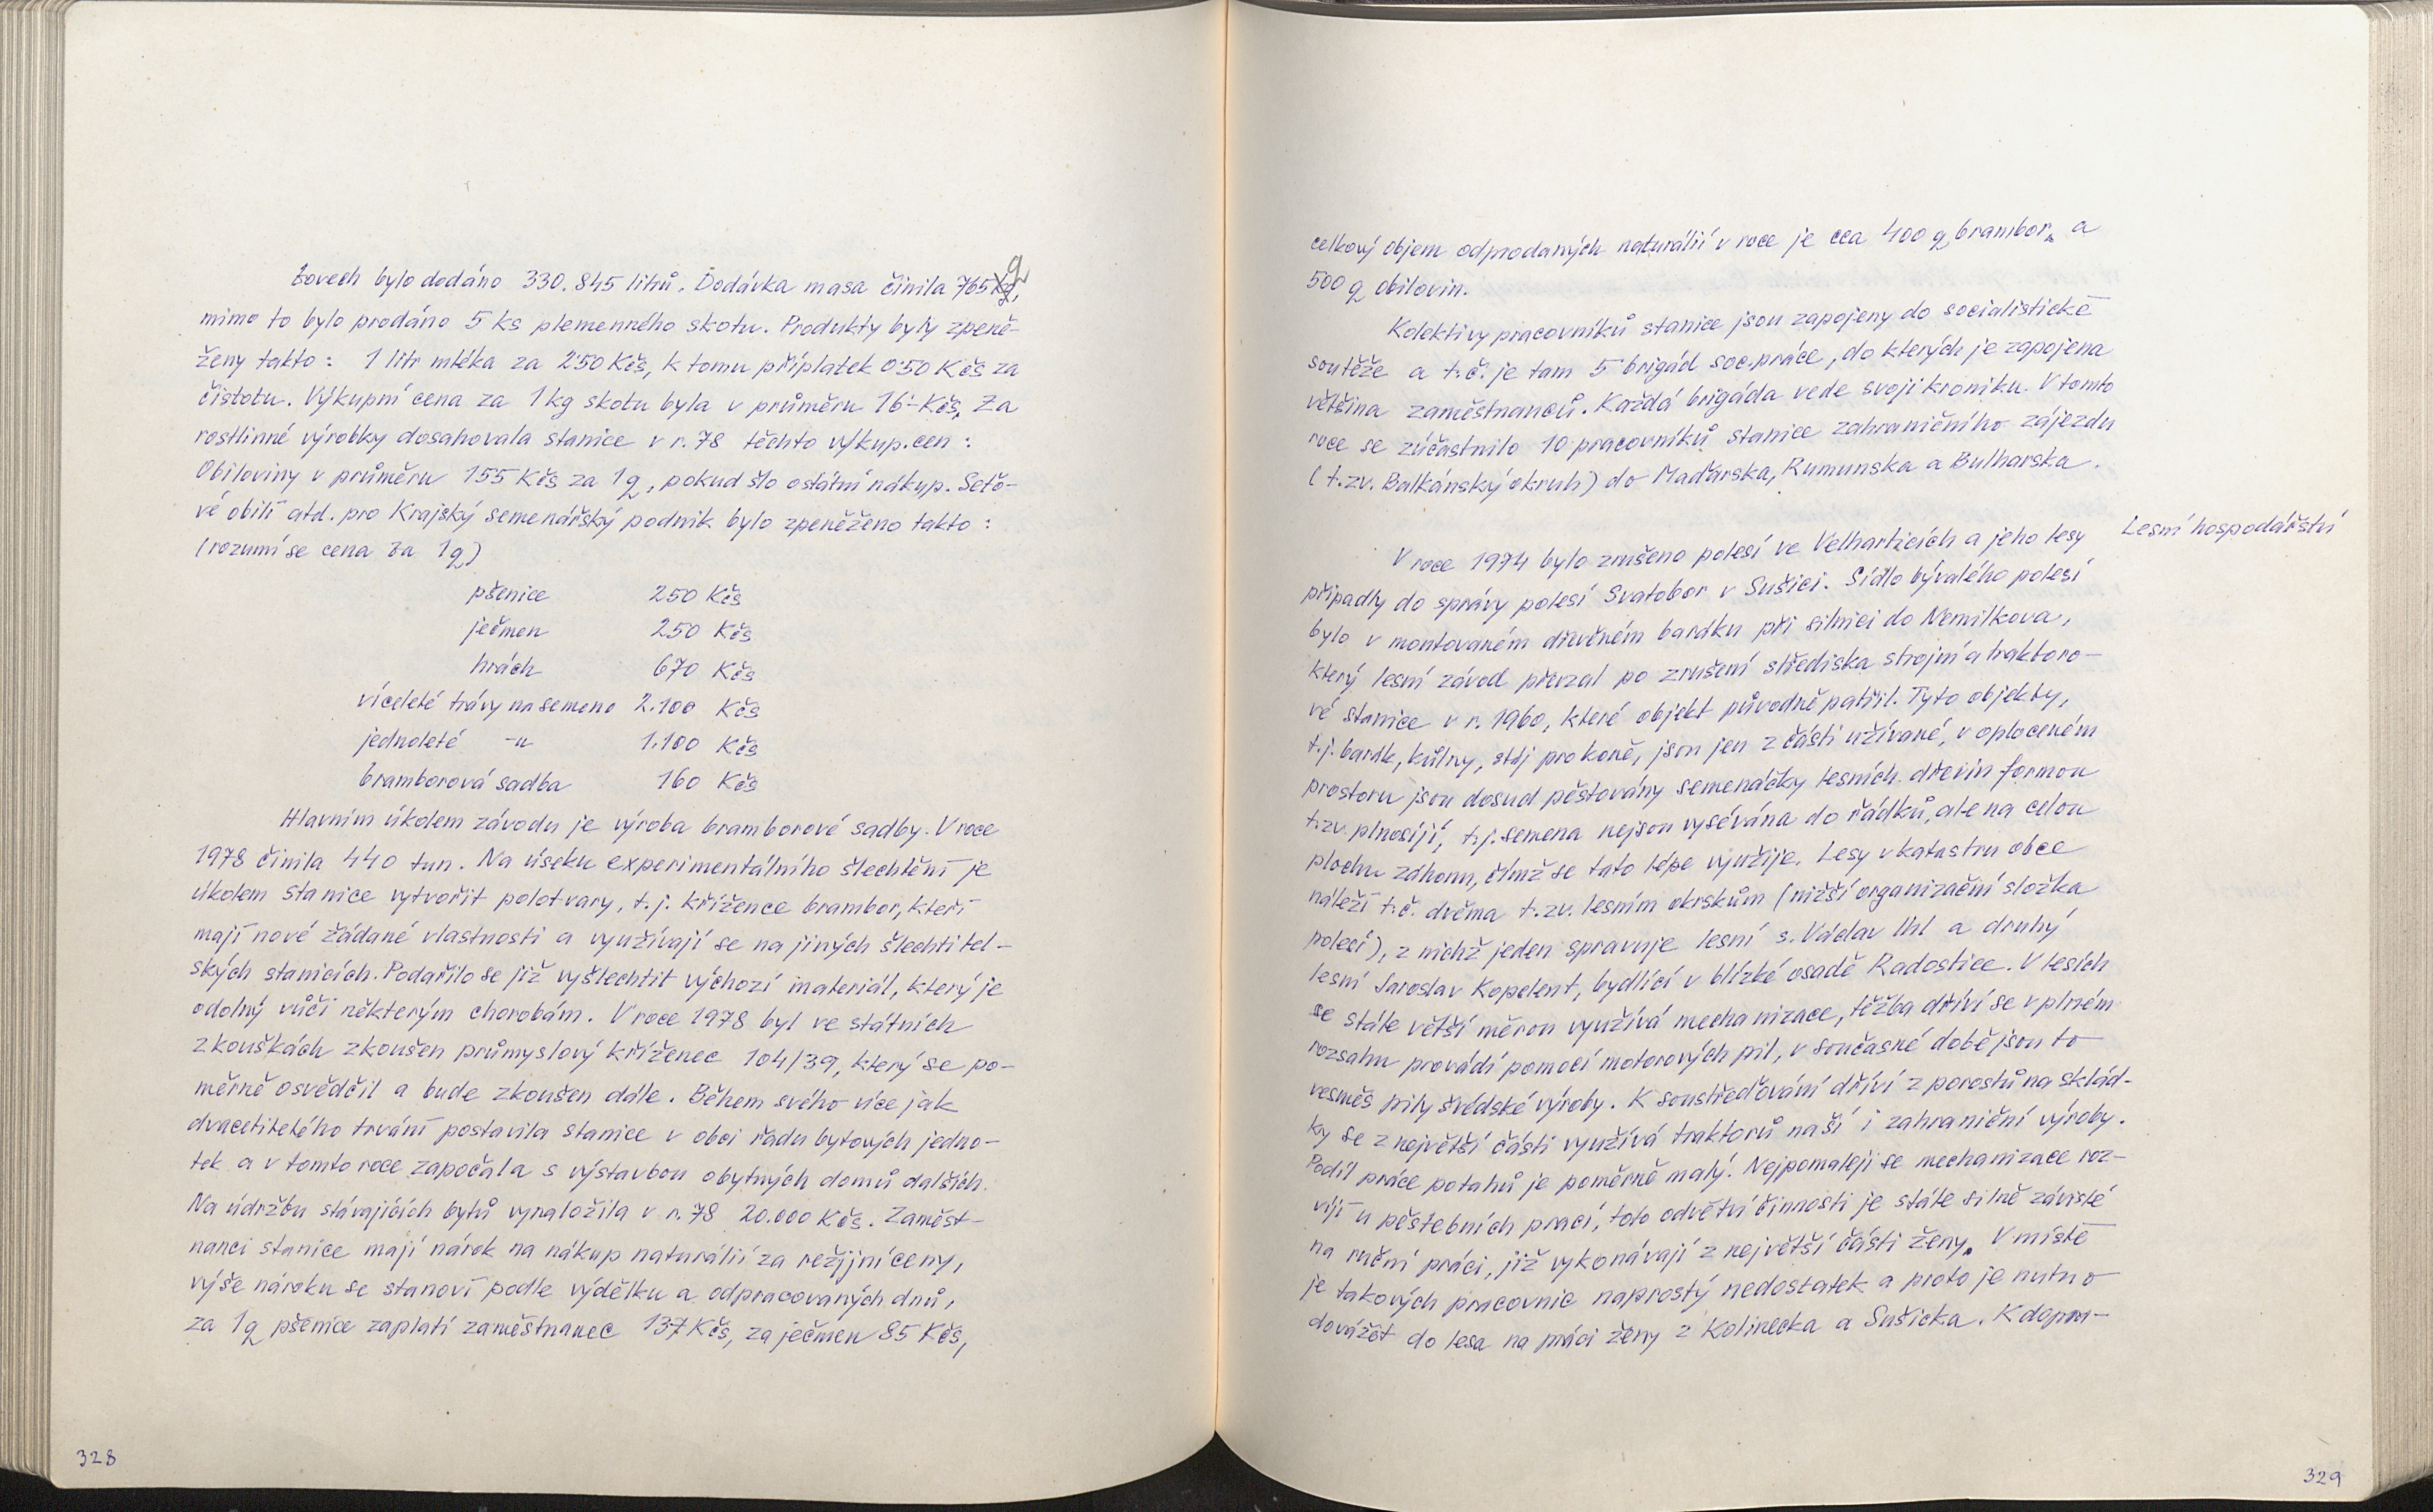 zovech bylo dodáno 330.845 litrů. Dodávka masa činila 765 q,
mimo to bylo prodáno 5 ks plemenného skotu. Produkty byly zpeně-
ženy takto: 1 litr mléka za 2'50 Kčs, k tomu příplatek 0'50 Kčs za
čistotu. Výkupní cena za 1 kg skotu byla v průměru 16'- Kčs, Za
rostlinné výrobky dosahovala stanice v r. 78 těchto výkup. cen:
Obiloviny v průměru 155 Kčs za 1 q, pokud šlo o státní nákup. Seťo-
vé obilí atd. pro Krajský semenářský podnik bylo zpeněženo takto:
(rozumí se cena za 1 q)
pšenice 250 Kčs
ječmen 250 Kčs
hrách 670 Kčs
víceleté trávy na semeno 2.100 Kčs
jednoleté -"- 1.100 Kčs
bramborová sadba 160 Kčs
Hlavním úkolem závodu je výroba bramborové sadby. V roce
1978 činila 440 tun. Na úseku experimentálního šlechtění je
úkolem stanice vytvořit polotvary, t.j. křížence brambor, kteří
mají nové žádané vlastnosti a využívají se na jiných šlechtitel-
ských stanicích. Podařilo se již vyšlechtit výchozí materiál, který je
odolný vůči některým chorobám. V roce 1978 byl ve státních
zkouškách zkoušen průmyslový kříženec 104/39, který se po-
měrně osvědčil a bude zkoušen dále. Během svého více jak
dvacetiletého trvání postavila stanice v obci řadu bytových jedno-
tek a v tomto roce započala s výstavbou obytných domů dalších.
Na údržbu stávajících bytů vynaložila v r. 78 20.000 Kčs. Zaměst-
nanci stanice mají nárok na nákup naturálií za režijní ceny,
výše nároku se stanoví podle výdělku a odpracovaných dnů,
za 1 q pšenice zaplatí zaměstnanec 137 Kčs, za ječmen 85 Kčs,
328
celkový objem odprodaných naturálií v roce je cca 400 q brambor a
500 q obilovin.
Kolektivy pracovníků stanice jsou zapojeny do socialistické
soutěže a t.č. je tam 5 brigád soc. práce, do kterých je zapojena
většina zaměstnanců. Každá brigáda vede svoji kroniku. V tomto
roce se zúčastnilo 10 pracovníků stanice zahraničního zájezdu
(t.zv. Balkánský okruh) do Maďarska, Rumunska a Bulharska.
Lesní hospodářství
V roce 1974 bylo zrušeno polesí ve Velharticích a jeho lesy
připadly do správy polesí Svatobor v Sušici. Sídlo bývalého polesí
bylo v montovaném dřevěném baráku při silnici do Nemilkova,
který lesní závod převzal po zrušení střediska strojní a traktoro-
vé stanice v r. 1960, které objekt původně patřil. Tyto objekty,
t.j. barák, kůlny, stáj pro koně, jsou jen z části užívané, v oploceném
prostoru jsou dosud pěstovány semenáčky lesních dřevin formou
t.zv. plnosíjí, t.j. semena nejsou vysévána do řádků, ale na celou
plochu záhonu, čímž se tato lépe využije. Lesy v katastru obce
náleží t.č. dvěma t.zv. lesním okrskům (nižší organizační složka
polesí), z nichž jeden spravuje lesní s. Václav Uhl a druhý
lesní Jaroslav Kopelent, bydlící v blízké osadě Radostice. V lesích
se stále větší měrou využívá mechanizace, těžba dříví se v plném
rozsahu provádí pomocí motorových pil, v současné době jsou to
vesměs pily švédské výroby. K soustřeďování dříví z porostů na sklád-
ky se z největší části využívá traktorů naší i zahraniční výroby.
Podíl práce potahů je poměrně malý. Nejpomaleji se mechanizace roz-
víjí u pěstebních prací, toto odvětví činnosti je stále silně závislé
na ruční práci, již vykonávají z největší části ženy. V místě
je takových pracovnic naprostý nedostatek a proto je nutno
dovážet do lesa na práci ženy z Kolinecka a Sušicka. K dopra-
329